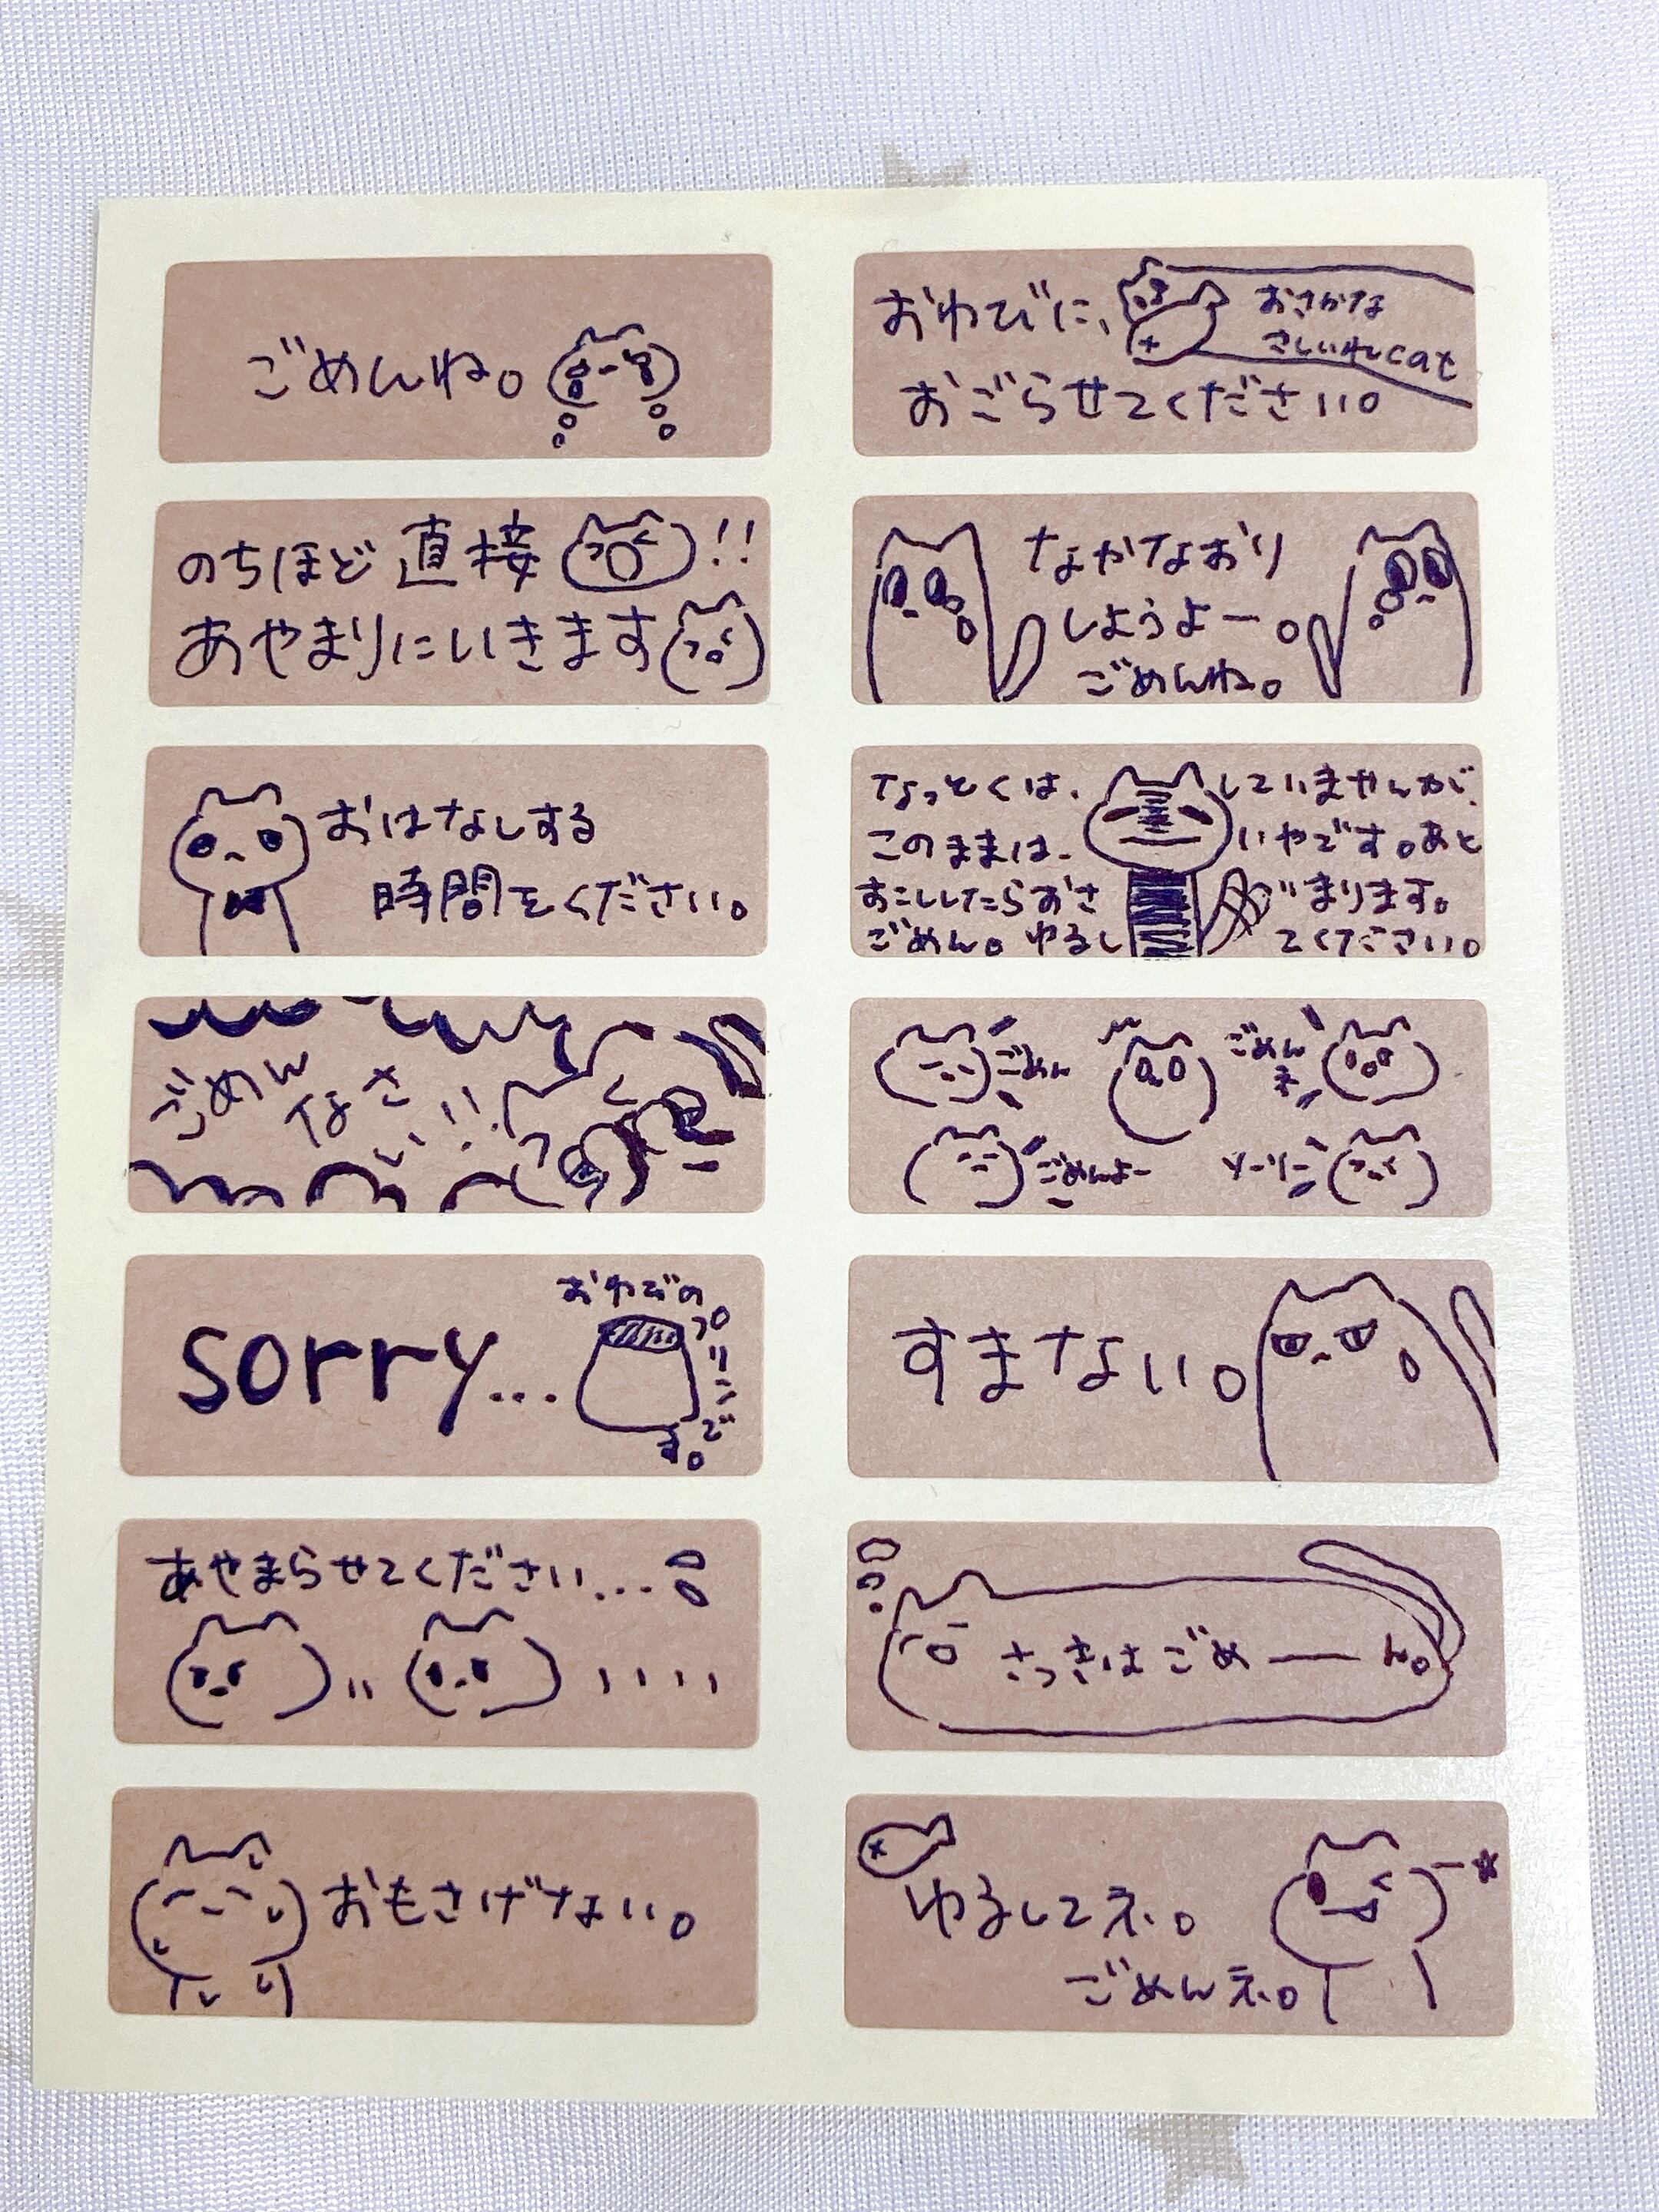 ごめんね。
おわびに、
おさかな
さしいれcat
おごらせてください。
のちほど直接!!
あやまりにいきます
なかなおり
しようよー。
ごめんね。
おはなしする
時間をください。
なっとくは、していませんが、
このままは、いやです。あと
おこしたらおさまります。
ごめん。ゆるしてください。
ごめん
なさ
い!!
ごめん
ごめん
ネ
ごめんよー
ソーリー
sorry...
おわびの
プリン
です。
すまない。
あやまらせてください...
さっきはごめーん。
おもさげない。
ゆるしてネ。
ごめんネ。